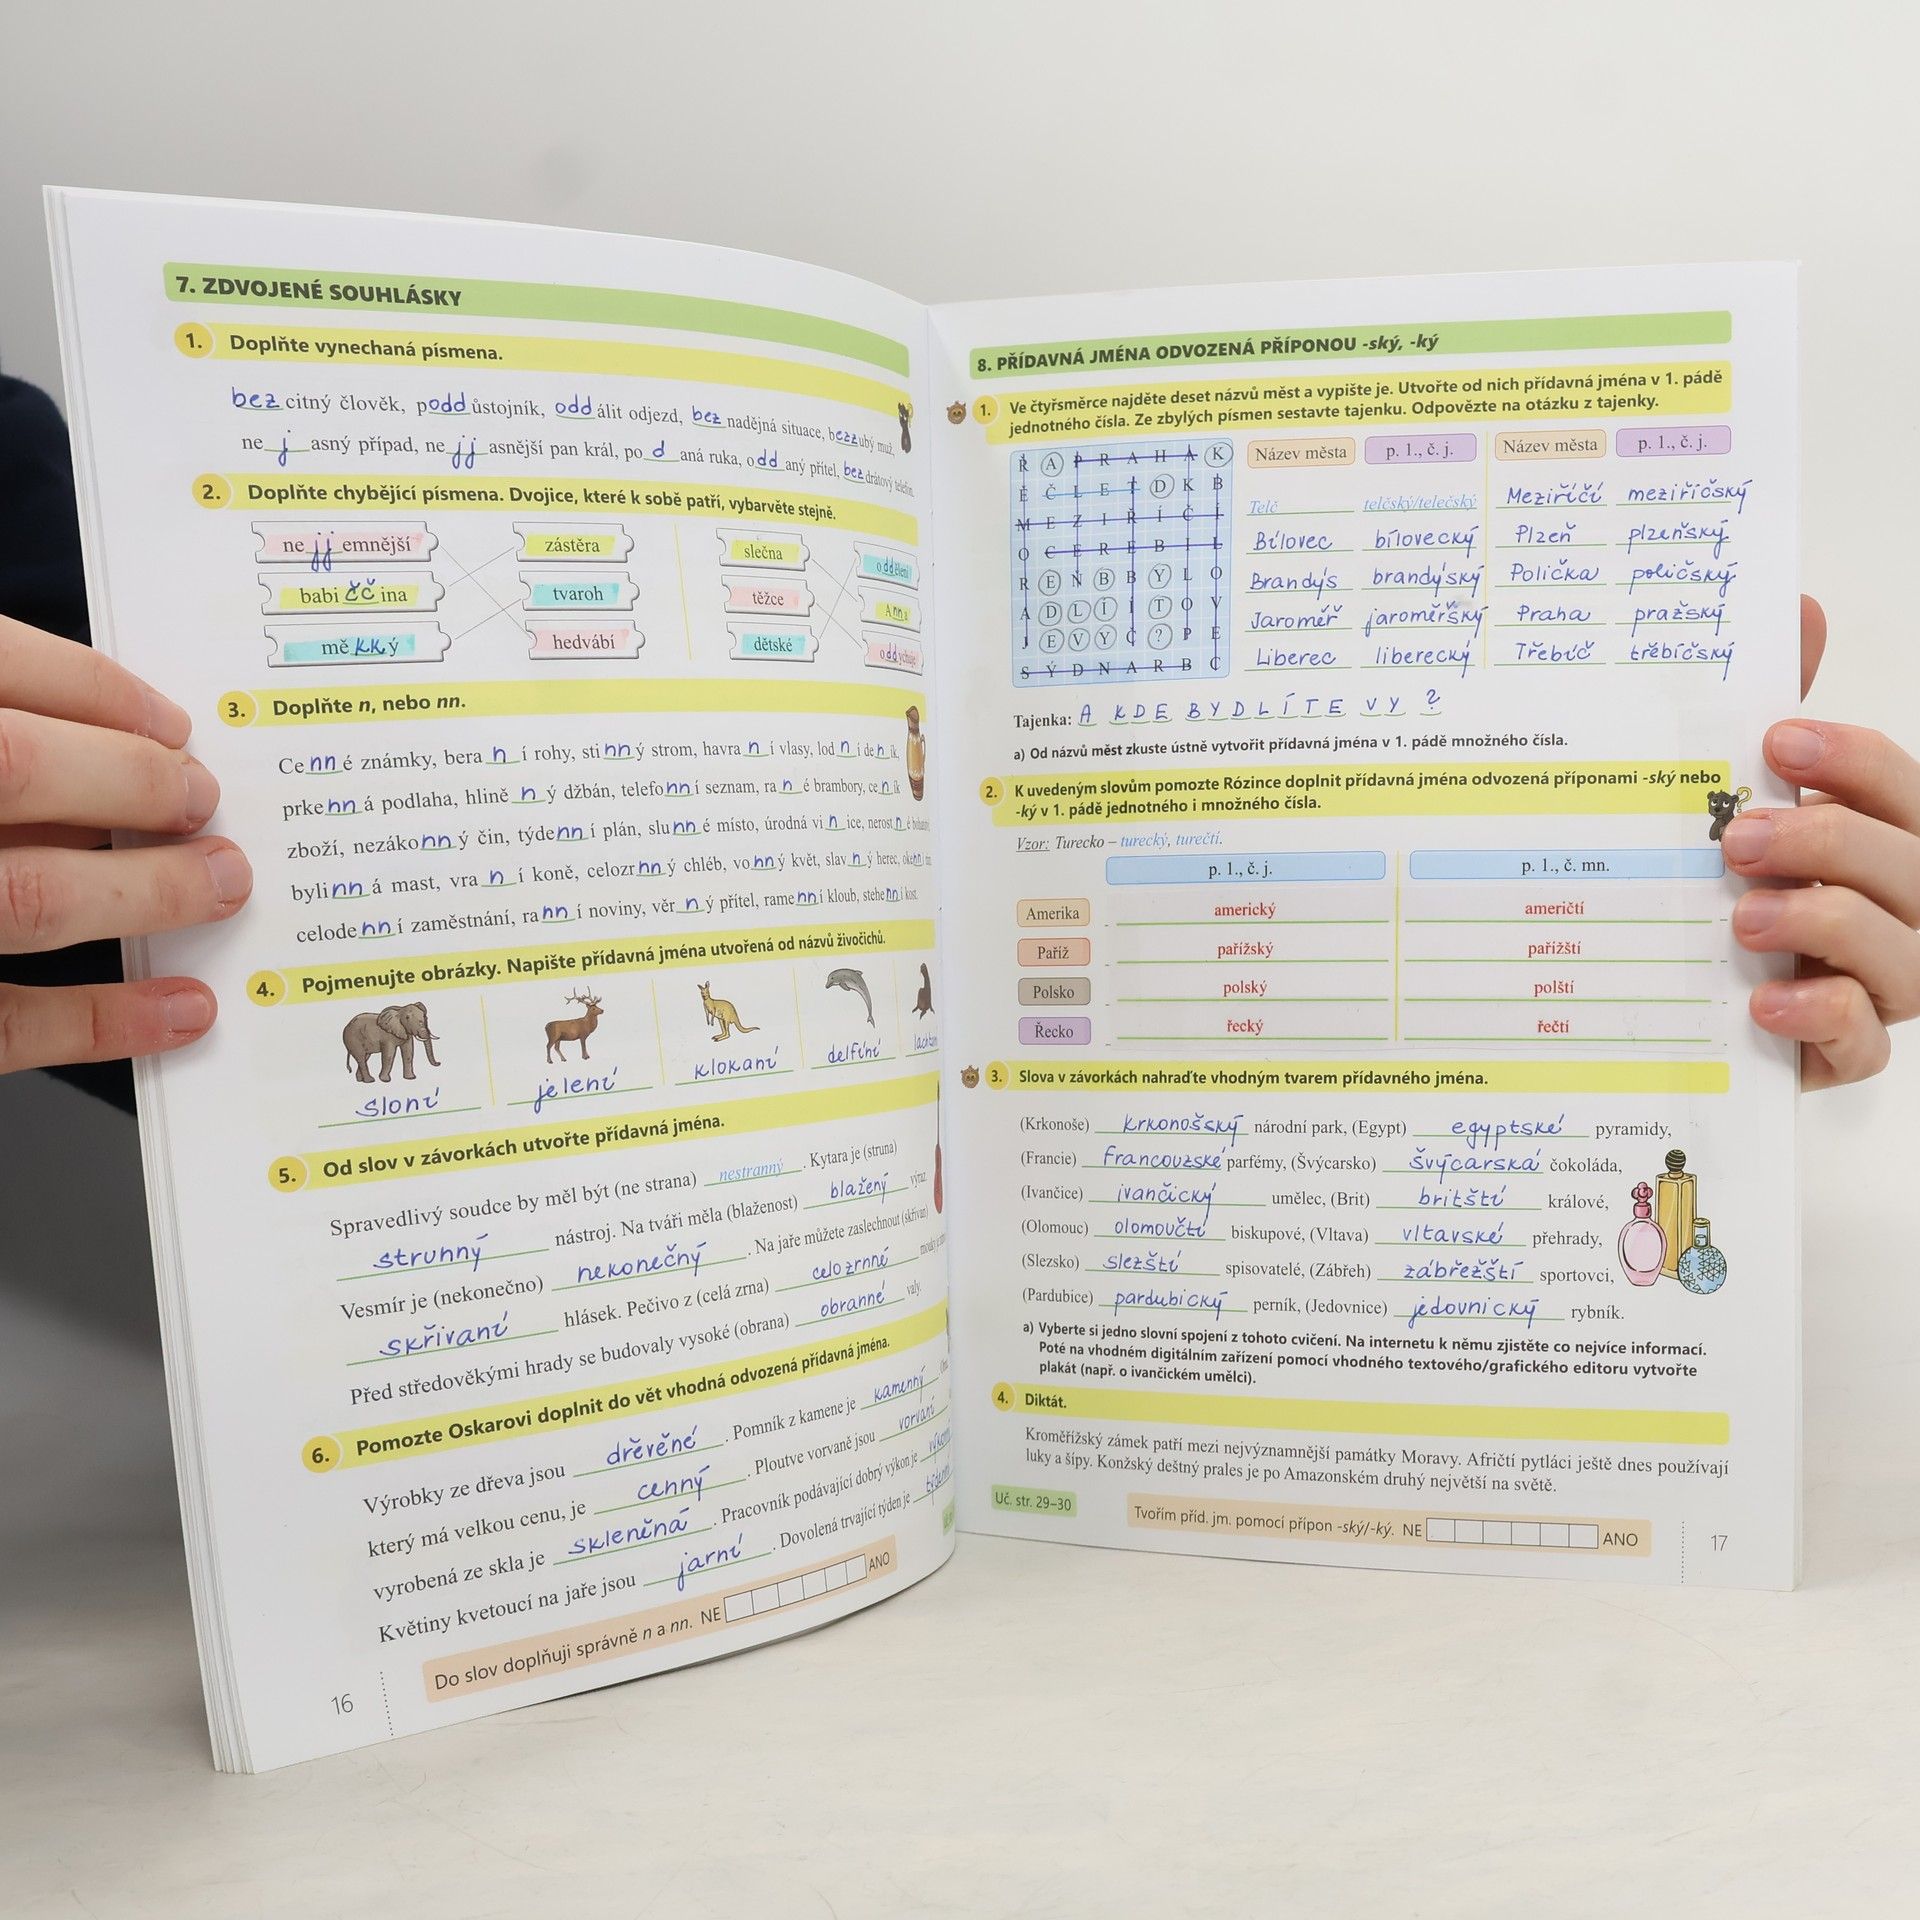 7. ZDVOJENÉ SOUHLÁSKY
1. Doplňte vynechaná písmena.
bezcitný člověk, poddůstojník, oddálit odjezd, beznadějná situace, bezzubý muž,
nejasný případ, nejjasnější pan král, podaná ruka, oddaný přítel, bezdrátový telefon.
2. Doplňte chybějící písmena. Dvojice, které k sobě patří, vybarvěte stejně.
nejjemnější zástěra slečna oddělení
babiččina tvaroh těžce Anna
měkký hedvábí dětské oddychuje
3. Doplňte n, nebo nn.
Cenné známky, beraní rohy, stinný strom, havraní vlasy, lodní deník,
prkenná podlaha, hliněný džbán, telefonní seznam, rané brambory, ceník
zboží, nezákonný čin, týdenní plán, slunné místo, úrodná vinice, nerostné
bylinná mast, vraní koně, celozrnný chléb, vonný květ, slavný herec, okenní
celodenní zaměstnání, ranní noviny, věrný přítel, ramenní kloub, stehenní kost.
4. Pojmenujte obrázky. Napište přídavná jména utvořená od názvů živočichů.
sloní jelení klokaní delfíní
5. Od slov v závorkách utvořte přídavná jména.
Spravedlivý soudce by měl být (ne strana) nestranný. Kytara je (struna)
strunný nástroj. Na tváři měla (blaženost) blažený výraz.
Vesmír je (nekonečno) nekonečný. Na jaře můžete zaslechnout (skřivan)
skřivaní hlásek. Pečivo z (celá zrna) celozrnné
Před středověkými hrady se budovaly vysoké (obrana) obranné valy.
6. Pomozte Oskarovi doplnit do vět vhodná odvozená přídavná jména.
Výrobky ze dřeva jsou dřevěné. Pomník z kamene je kamenný.
který má velkou cenu, je cenný. Ploutve vorvaně jsou vorvaní
vyrobená ze skla je skleněná. Pracovník podávající dobrý výkon je
Květiny kvetoucí na jaře jsou jarní. Dovolená trvající týden je týdenní
Do slov doplňuji správně n a nn. NE ANO
16
8. PŘÍDAVNÁ JMÉNA ODVOZENÁ PŘÍPONOU -ský, -ký
1. Ve čtyřsměrce najděte deset názvů měst a vypište je. Utvořte od nich přídavná jména v 1. pádě
jednotného čísla. Ze zbylých písmen sestavte tajenku. Odpovězte na otázku z tajenky.
R A P R A H A K
Ě Č L E T D K B
M E Z I Ř Í Č Í
O C E R E B I L
R E Ň B B Y L O
A D L Í I T O V
J E V Y Č ? P E
S Ý D N A R B C
Název města p. 1., č. j. Název města p. 1., č. j.
Telč telčský/telečský Meziříčí meziříčský
Bílovec bílovecký Plzeň plzeňský
Brandýs brandýský Polička poličský
Jaroměř jaroměřský Praha pražský
Liberec liberecký Třebíč třebíčský
Tajenka: A KDE BYDLÍTE VY ?
a) Od názvů měst zkuste ústně vytvořit přídavná jména v 1. pádě množného čísla.
2. K uvedeným slovům pomozte Rózince doplnit přídavná jména odvozená příponami -ský nebo
-ký v 1. pádě jednotného i množného čísla.
Vzor: Turecko – turecký, turečtí.
p. 1., č. j. p. 1., č. mn.
Amerika americký američtí
Paříž pařížský pařížští
Polsko polský polští
Řecko řecký řečtí
3. Slova v závorkách nahraďte vhodným tvarem přídavného jména.
(Krkonoše) krkonošský národní park, (Egypt) egyptské pyramidy,
(Francie) francouzské parfémy, (Švýcarsko) švýcarská čokoláda,
(Ivančice) ivančický umělec, (Brit) britští králové,
(Olomouc) olomoučtí biskupové, (Vltava) vltavské přehrady,
(Slezsko) slezští spisovatelé, (Zábřeh) zábřežští sportovci,
(Pardubice) pardubický perník, (Jedovnice) jedovnický rybník.
a) Vyberte si jedno slovní spojení z tohoto cvičení. Na internetu k němu zjistěte co nejvíce informací.
Poté na vhodném digitálním zařízení pomocí vhodného textového/grafického editoru vytvořte
plakát (např. o ivančickém umělci).
4. Diktát.
Kroměřížský zámek patří mezi nejvýznamnější památky Moravy. Afričtí pytláci ještě dnes používají
luky a šípy. Konžský deštný prales je po Amazonském druhý největší na světě.
Uč. str. 29–30
Tvořím příd. jm. pomocí přípon -ský/-ký. NE ANO
17